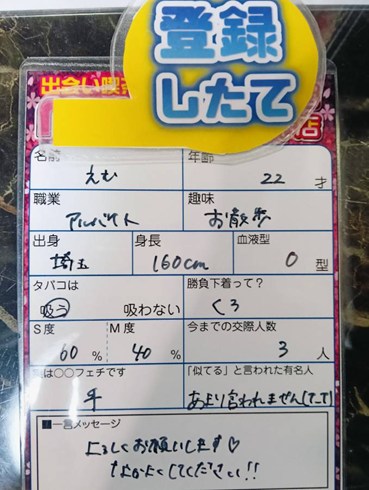 登録
したて
出会い喫
店
名前 えむ 年齢 22 才
職業 アルバイト 趣味 お散歩
出身 埼玉 身長 160cm 血液型 O 型
タバコは 吸う 吸わない 勝負下着って? くろ
S度 60 % M度 40 % 今までの交際人数 3 人
は○○フェチです 手 「似てる」と言われた有名人 あまり言われません(T_T)
■一言メッセージ
よろしくお願いします♡
なかよくしてください!!